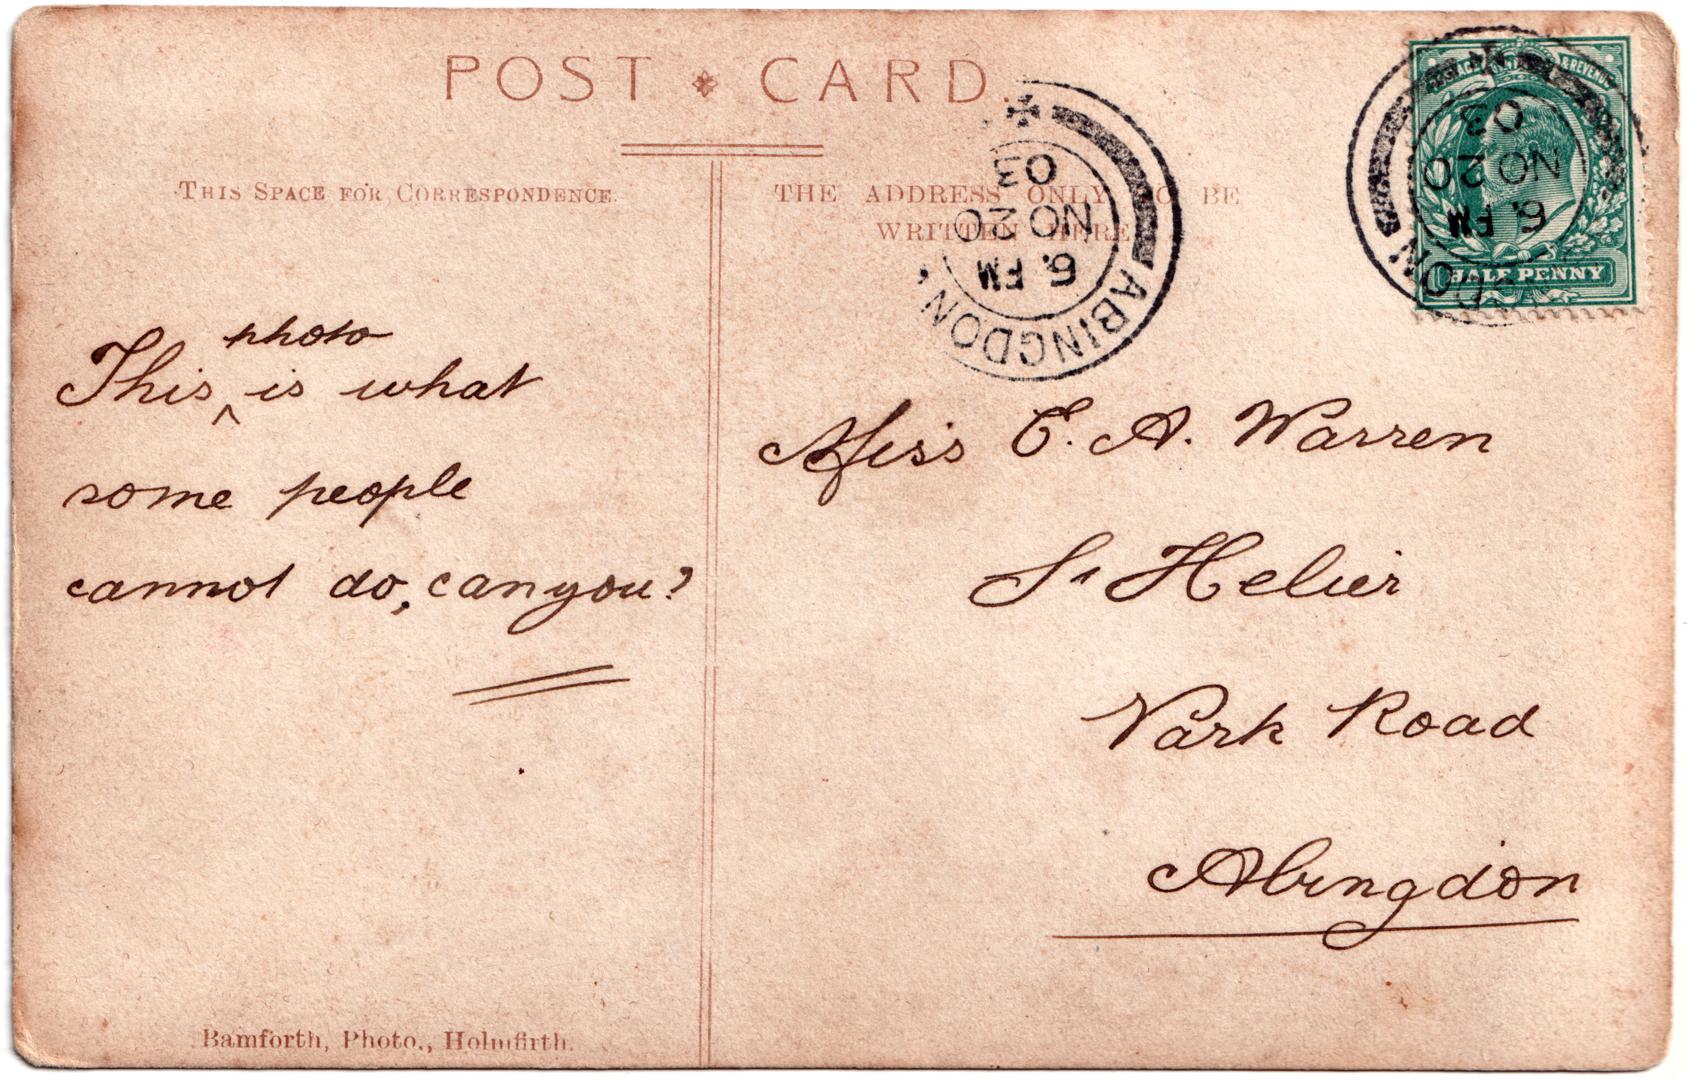 POST CARD.
THIS SPACE FOR CORRESPONDENCE.
THE ADDRESS ONLY TO BE
WRITTEN HERE
ABINGDON
6. PM
NO 20
03
POSTAGE & REVENUE
HALF PENNY
DON
6. PM
NO 20
03
photo
This ‸ is what
some people
cannot do, can you?
Miss E. A. Warren
St Helier
Park Road
Abingdon
Bamforth, Photo., Holmfirth.